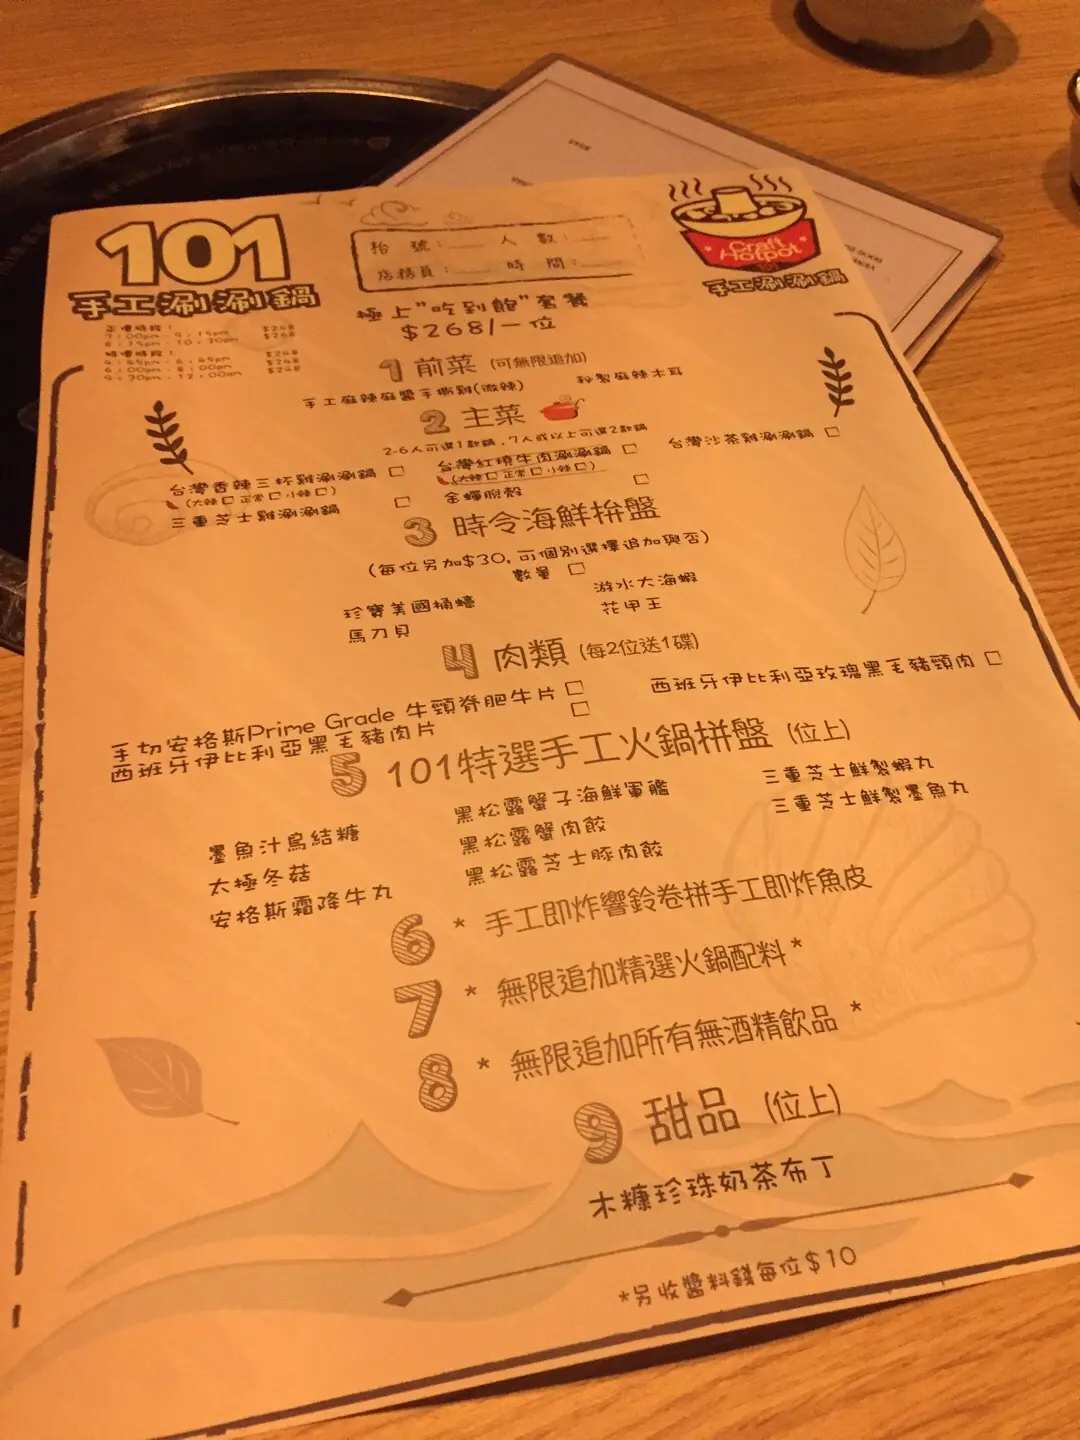 101
手工涮涮鍋
枱 號：
人 數：
店務員：
時 間：
Craft
Hotpot
101
手工涮涮鍋
極上"吃到飽"套餐
$268/一位
正價時段：
7:00pm - 9:15pm $268
8:15pm - 10:30pm $268
特價時段：
4:45pm - 6:45pm $248
6:00pm - 8:00pm $248
9:30pm - 12:00am $248
1 前菜 (可無限追加)
手工麻辣麻醬手撕雞(微辣)
秘製麻辣木耳
2 主菜
2-6人可選1款鍋，7人或以上可選2款鍋
台灣香辣三杯雞涮涮鍋 □
(大辣□ 正常□ 小辣□)
台灣紅燒牛肉涮涮鍋 □
(大辣□ 正常□ 小辣□)
台灣沙茶雞涮涮鍋 □
三重芝士雞涮涮鍋 □
金蟬脫殼 □
3 時令海鮮拼盤
(每位另加$30，可個別選擇追加與否)
數量 □
珍寶美國桶蠔
游水大海蝦
馬刀貝
花甲王
4 肉類 (每2位送1碟)
手切安格斯Prime Grade 牛頸脊肥牛片 □
西班牙伊比利亞玫瑰黑毛豬頸肉 □
西班牙伊比利亞黑毛豬肉片 □
5 101特選手工火鍋拼盤 (位上)
墨魚汁烏結糖
黑松露蟹子海鮮軍艦
三重芝士鮮製蝦丸
太極冬菇
黑松露蟹肉餃
三重芝士鮮製墨魚丸
安格斯霜降牛丸
黑松露芝士豚肉餃
6 * 手工即炸響鈴卷拼手工即炸魚皮
7 * 無限追加精選火鍋配料 *
8 * 無限追加所有無酒精飲品 *
9 甜品 (位上)
木糠珍珠奶茶布丁
*另收醬料錢每位$10